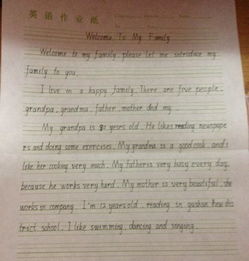 英语作业纸
Welcome To My Family
Welcome to my family, please let me introduce my
family to you.
I live in a happy family. There are five people.
grandpa, grandma, father, mother and my
My grandpa is years old. He likes reading newspape
rs and doing some exercises. My grandma is a good cook. and I
like her cooking very much. My father is very busy every day,
because he works very hard. My mother is very beautiful. she
works in company. I'm 12 years old. reading in
trict school. I like swimming, dancing and singing.